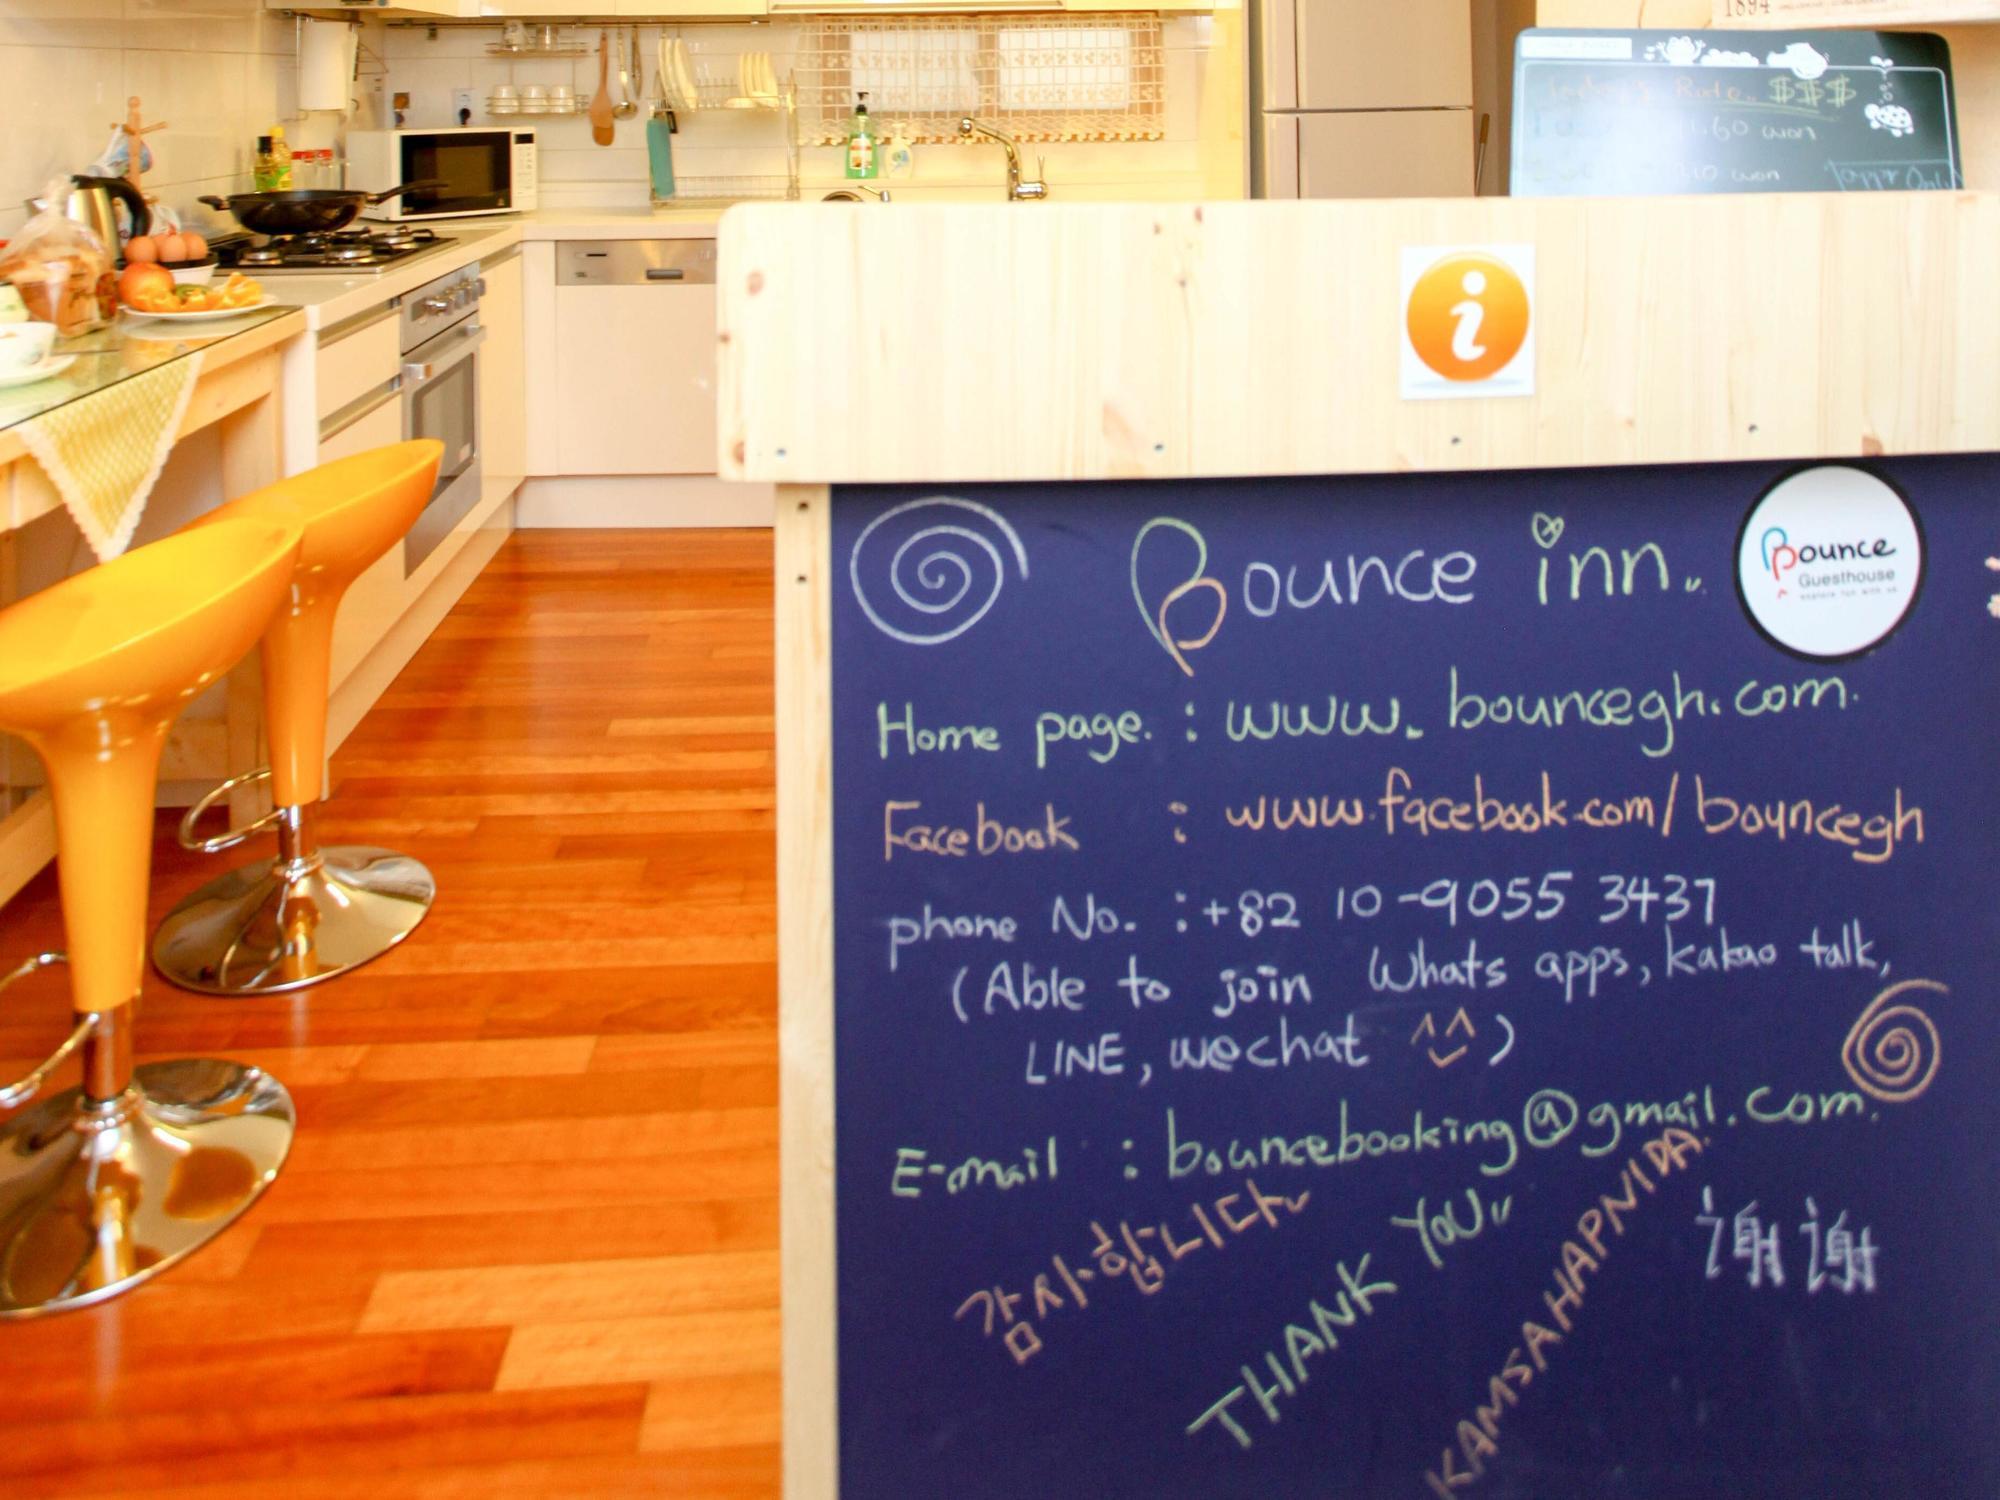 1894
Rate.. $$$
60 won
10 won
i
Bounce inn.
Bounce
Guesthouse
explore fun with us
Home page. : www.bouncegh.com.
Facebook : www.facebook.com/bouncegh
phone No. : +82 10-9055 3437
(Able to join Whats apps, kakao talk,
LINE, wechat ^^)
E-mail : bouncebooking@gmail.com.
감사합니다~
THANK YOU"
KAMSAHAPNIDA.
谢谢